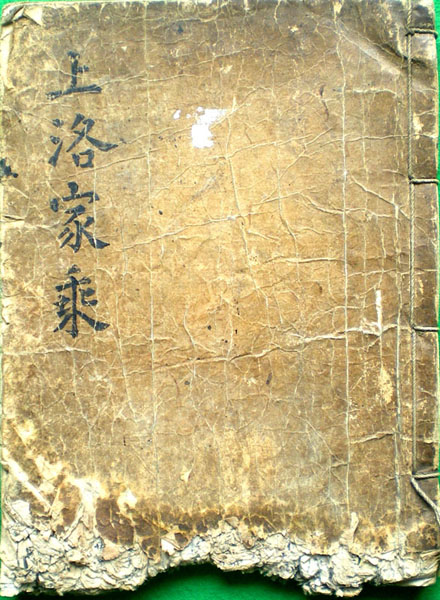 上洛家乘